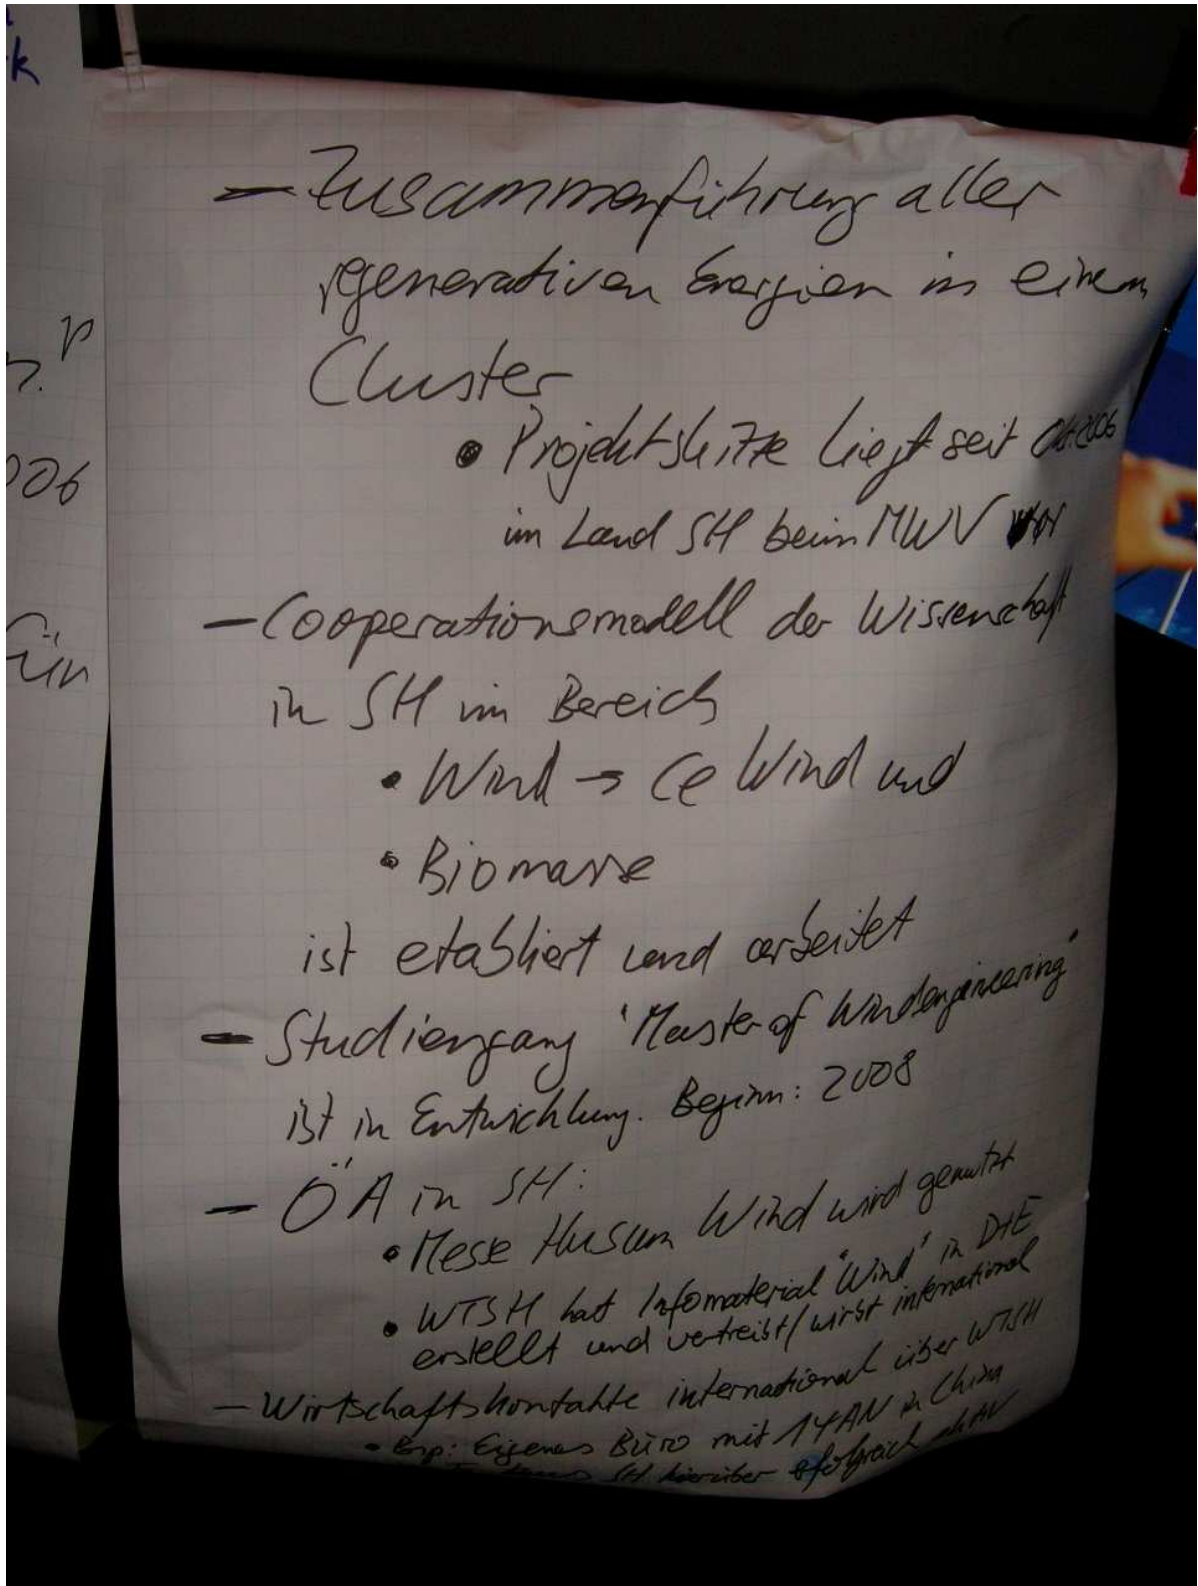 k
p
006
ün
– Zusammenführung aller
regenerativen Energien in einem
Cluster
• Projektskizze liegt seit Okt 2006
im Land SH beim MWV vor
– Cooperationsmodell der Wissenschaft
in SH im Bereich
• Wind → Ce Wind und
• Biomasse
ist etabliert und arbeitet
– Studiengang "Master of Windengineering"
ist in Entwicklung. Beginn: 2008
– ÖA in SH:
• Messe Husum Wind wird genutzt
• WTSH hat Infomaterial "Wind" in D+E
erstellt und vertreibt/wirbt international
– Wirtschaftskontakte international über WTSH
• Bsp: Eigenes Büro mit 14 AN in China
SH hierüber erfolgreich